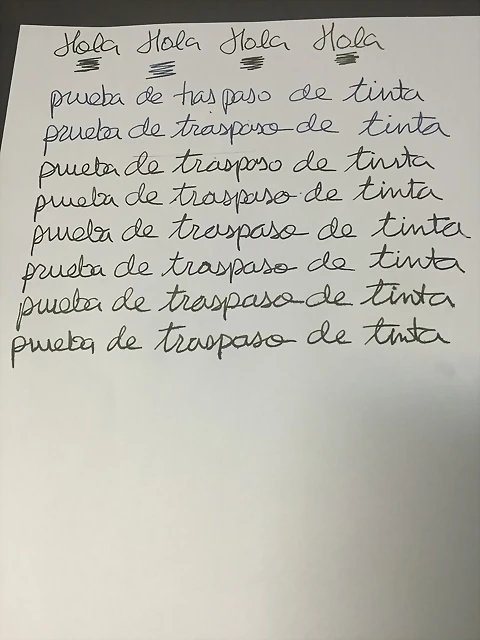 Hola Hola Hola Hola
prueba de traspaso de tinta
prueba de traspaso de tinta
prueba de traspaso de tinta
prueba de traspaso de tinta
prueba de traspaso de tinta
prueba de traspaso de tinta
prueba de traspaso de tinta
prueba de traspaso de tinta